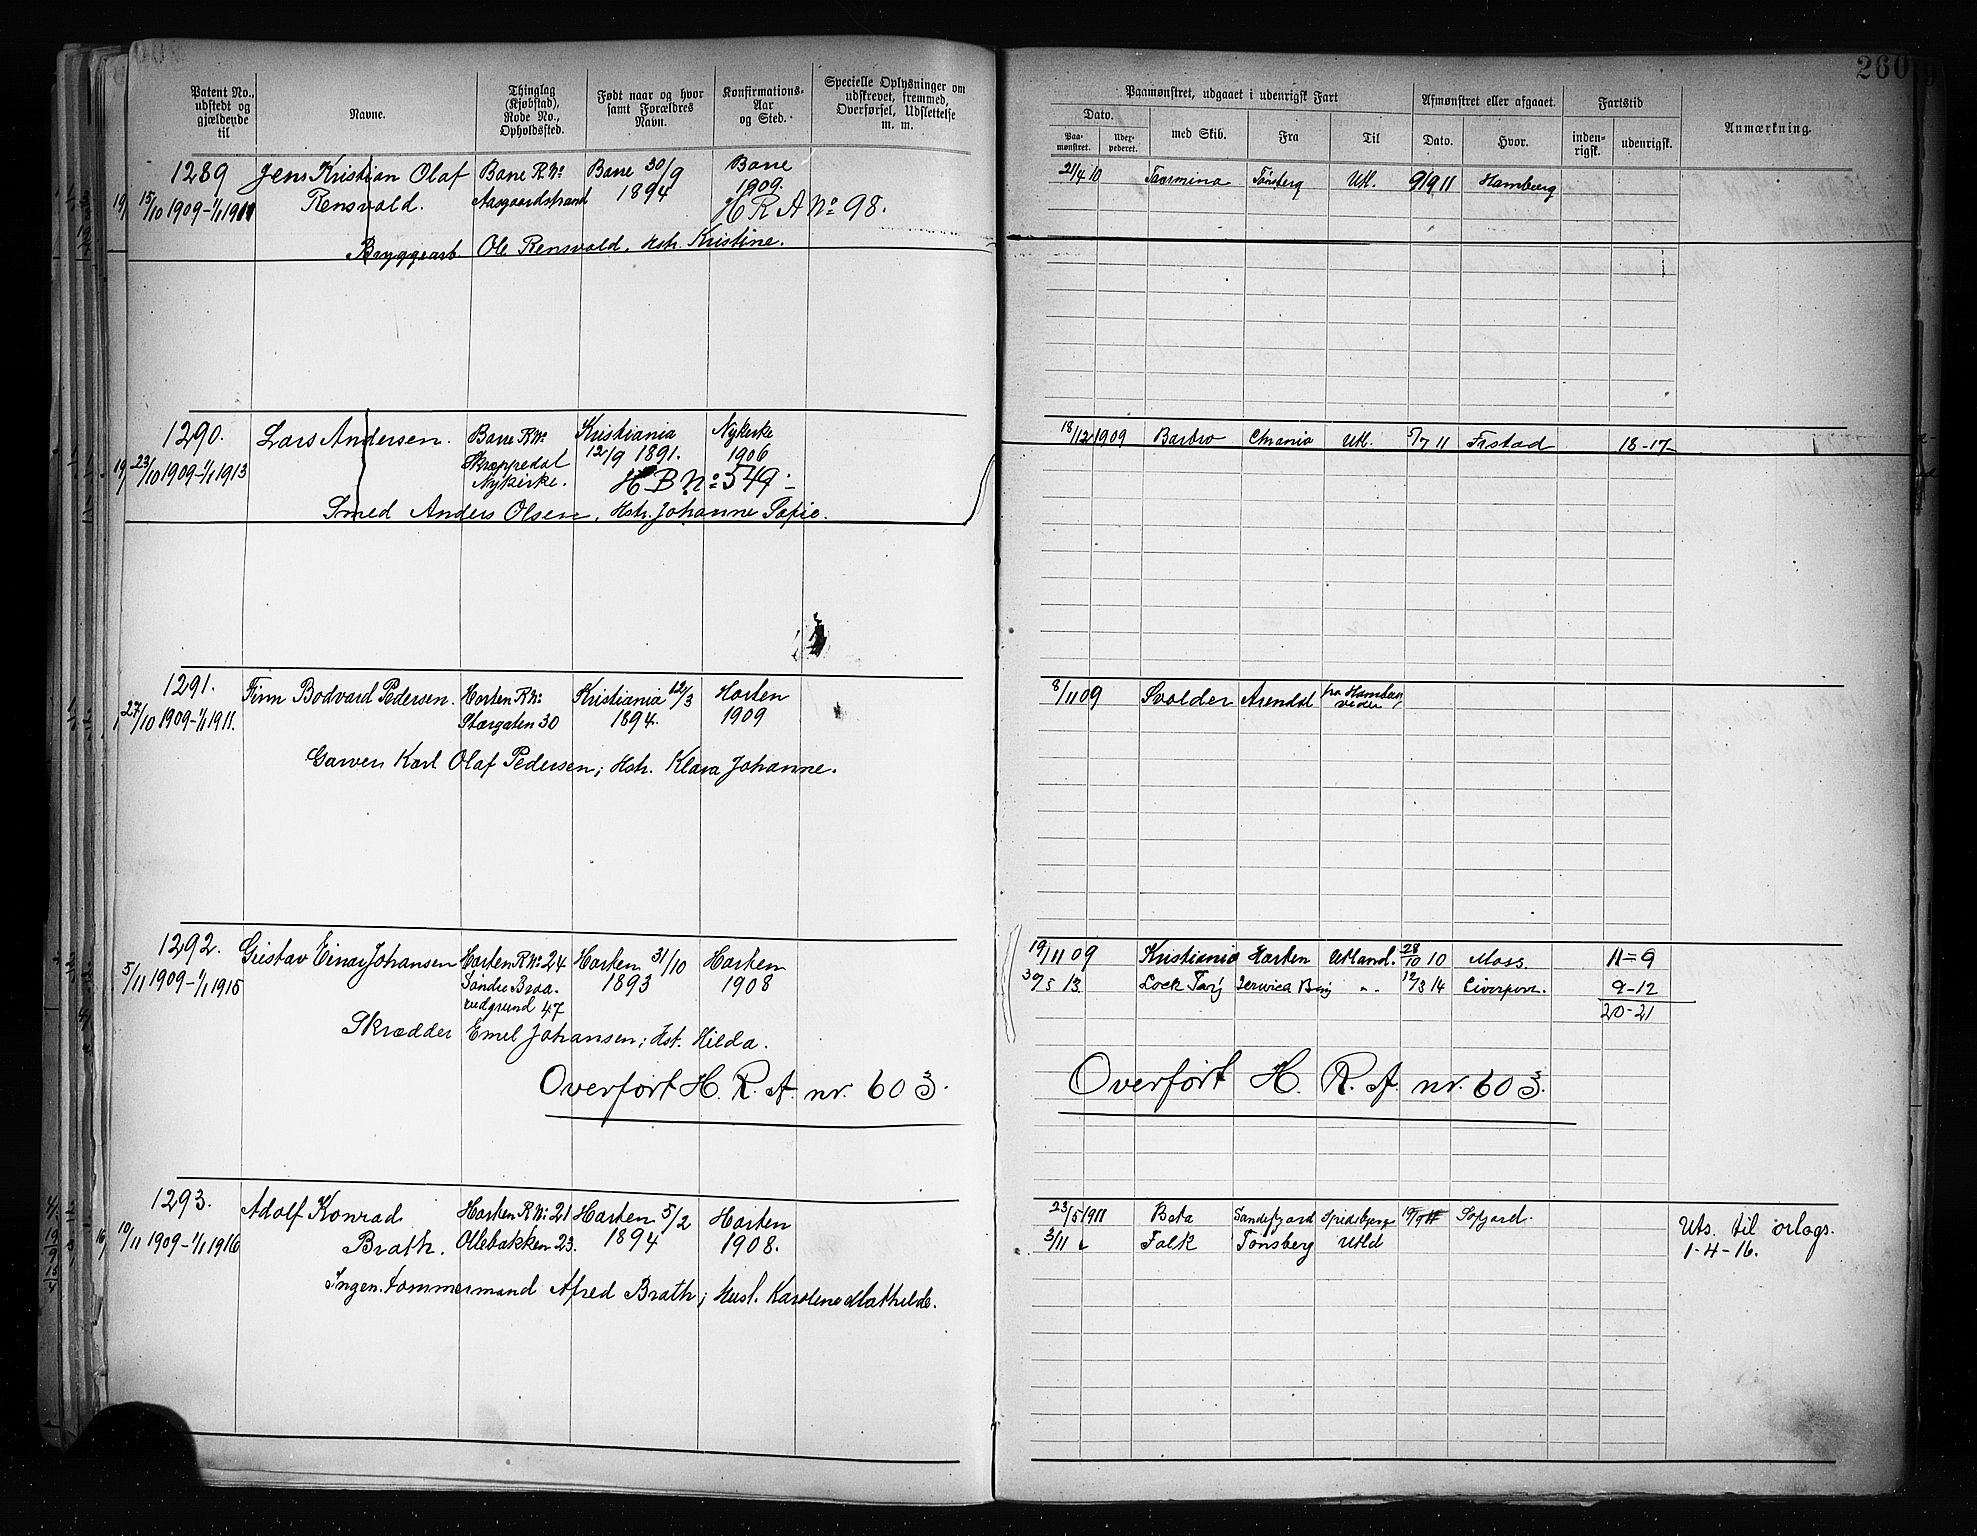 260
Patent No., udstedt og gjældende til
Navne.
Thinglag (Kjøbstad), Rode No., Opholdssted.
Født naar og hvor samt Forældres Navn.
Konfirmations-Aar og Sted.
Specielle Oplysninger om udskrevet, fremmed, Overførsel, Udslettelse m. m.
Paamønstret, udgaaet i udenrigsk Fart
Dato.
Paa-mønstret.
Uder-pederet.
med Skib.
Fra
Til
Afmønstret eller afgaaet.
Dato.
Hvor.
Fartstid
inden-rigsk.
udenrigsk.
Anmærkning.
1289 Jens Kristian Olaf Borre R.No Borre 30/9 Borre
15/10 1909-1/1 19 Rensvold. Aasgaardstrand 1894 1909.
H R A No 98.
Bryggearb Ole Rensvold, Hstr. Kristine.
21/4 10 Taormina Tönsberg Utl. 9/9 11 Hamburg
1290. Lars Andersen. Borre R.No Kristiania Nykirke
23/10 1909-1/1 1913 Skroppedal 12/9 1891. 1906
Nykirke. H B No 549
Smed Anders Olsen, Hstr. Johanne Sofie.
18/12 1909 Barbro Chrania Utl. 5/7 11 Frstad 18-17
1291. Finn Bodvard Pedersen. Horten R.No Kristiania 12/3 Horten
27/10 1909-1/1 1911. Storgaten 30 1894. 1909
Garver Karl Olaf Pedersen; Hstr. Klara Johanne.
8/11 09 Svolder Arendal fra Hamburg
videre
1292. Gustav Einar Johansen Horten R.No 24 Horten 31/10 Horten
5/11 1909-1/1 1915 Söndre Braa- 1893 1908
vedgrund 47
Skrædder Emil Johansen; Hst. Hilda.
Overført H. R. A. nr. 603.
19/11 09 Kristiania Horten Utland. 28/10 10 Moss. 11=9
30/5 13 Lock Tay 12/3 14 Liverpool. 9-12
20-21
Overført H. R. A. nr. 603.
1293. Adolf Konrad Horten R.No 21 Horten 5/2 Horten
10/11 1909-1/1 1916 Brath. Ollebakken 23. 1894 1908.
Ingen. tømmermand Alfred Brath; Hust. Karoline Mathilde.
23/5 1911 Beta Sandefjord Spidsbjerg Sofjord.
3/11 Falk Tønsberg Utld
Uts. til orlogs.
1-4-16.